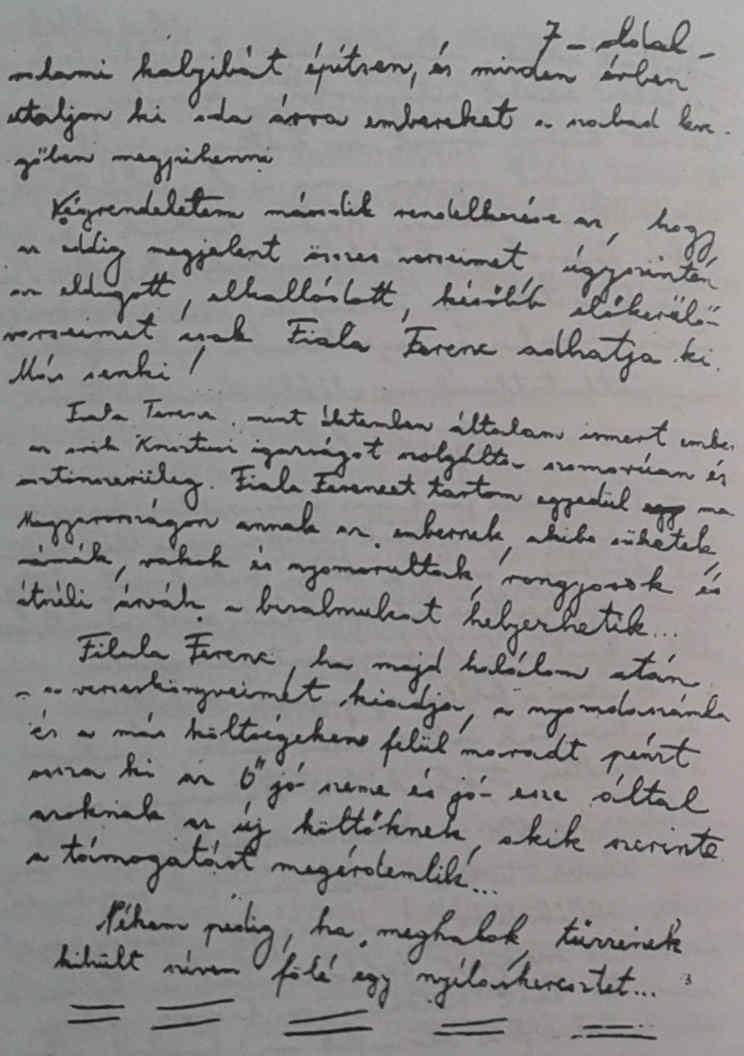 7 - oldal -
valami kalyibát építsen, és minden évben
utaljon ki oda árva embereket a szabad leve-
gőben megpihenni
Végrendeletem második rendelkezése az, hogy
az eddig megjelent összes verseimet, úgyszintén
az eldugott, elkallódott, később előkerülő
verseimet csak Fiala Ferenc adhatja ki.
Más senki!
Fiala Ferenc, mint életemben általam ismert embe,
az aki Krisztusi igazságot szolgálta szomorúan és
Fiala Ferencet tartom egyedül ma
Magyarországon annak az embernek, akibe süketek,
némák, vakok és nyomorultak, rongyosok és
átvéli árvák a bizalmukat helyezhetik...
Filala Ferenc, ha majd halálom után
- a verseskönyveimet kiadja, a nyomdaszámla
és a más költségeken felül maradt pénzt
ossza ki az Ő jó szeme és jó esze által
azoknak az új költőknek, akik szerinte
a támogatást megérdemlik...
Nékem pedig, ha meghalok, tűzzenek
kihült szívem fölé egy nyilaskeresztet...